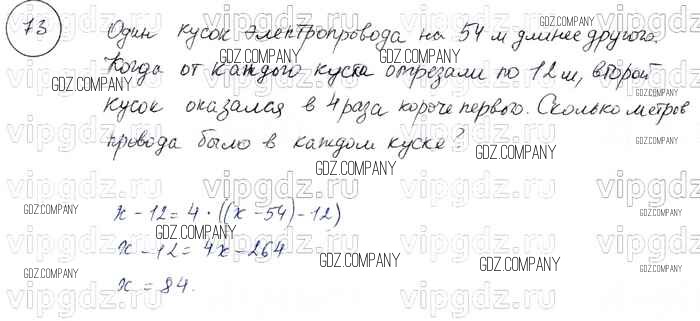 73
Один кусок электропровода на 54 м длиннее другого.
Когда от каждого куска отрезали по 12 м, второй
кусок оказался в 4 раза короче первого. Сколько метров
провода было в каждом куске?
x - 12 = 4 · ((x - 54) - 12)
x - 12 = 4x - 264
x = 84.
vipgdz.ru
GDZ.COMPANY